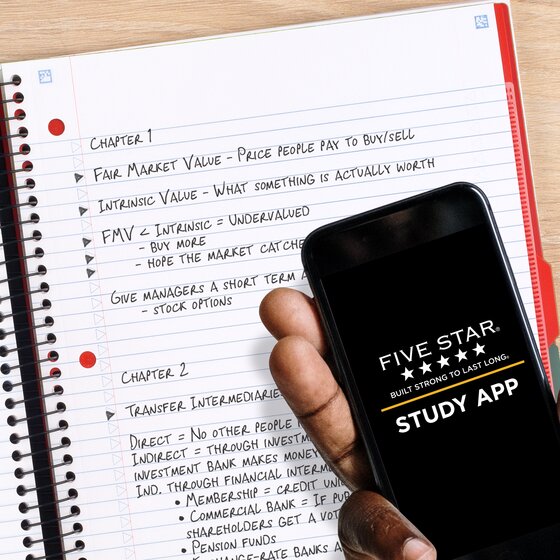 CHAPTER 1
FAIR MARKET VALUE - PRICE PEOPLE PAY TO BUY/SELL
INTRINSIC VALUE - WHAT SOMETHING IS ACTUALLY WORTH
FMV < INTRINSIC = UNDERVALUED
- BUY MORE
- HOPE THE MARKET CATCHE
GIVE MANAGERS A SHORT TERM
- STOCK OPTIONS
CHAPTER 2
TRANSFER INTERMEDIARIE
DIRECT = NO OTHER PEOPLE
INDIRECT = THROUGH INVESTM
INVESTMENT BANK MAKES MONEY
IND. THROUGH FINANCIAL INTERM
• MEMBERSHIP = CREDIT UNI
• COMMERCIAL BANK = IF PUB
SHAREHOLDERS GET A VOT
• PENSION FUNDS
EXCHANGE-RATE BANKS A
FIVE STAR®
★★★★★
BUILT STRONG TO LAST LONG.
STUDY APP